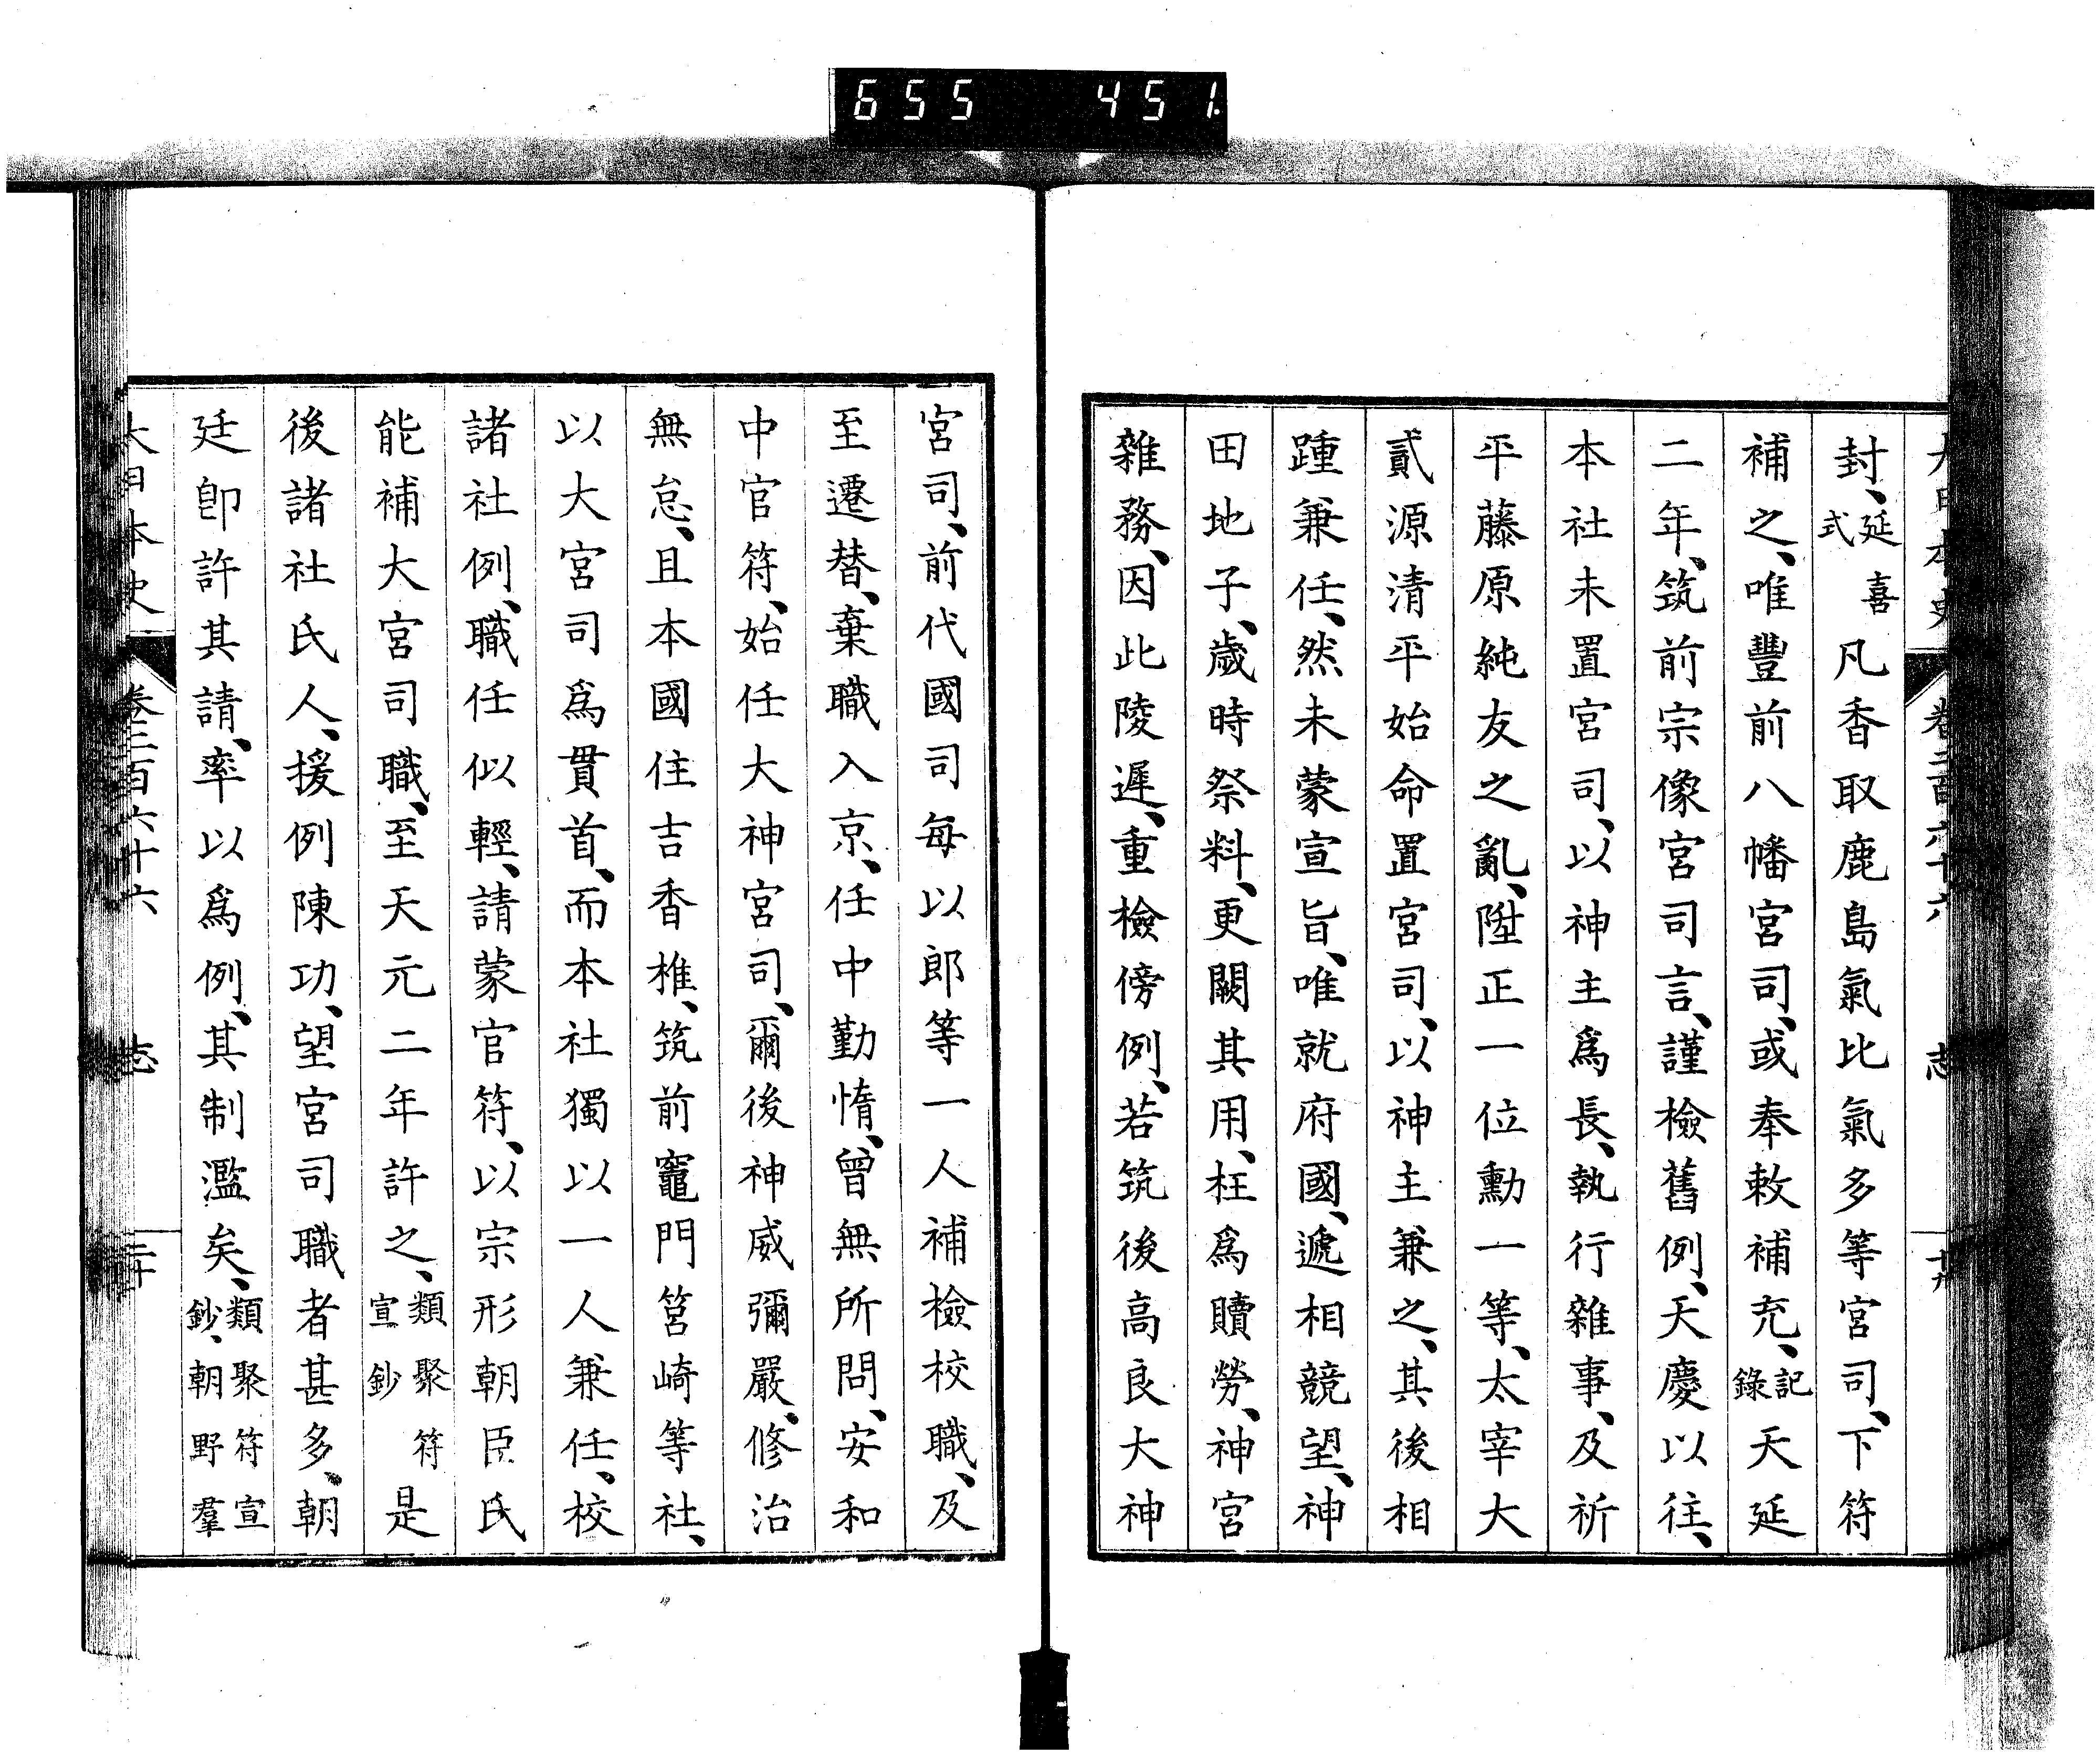 655 451
大日本史 卷三百六十六 志 十九
封、延喜式凡香取鹿島氣比氣多等宮司、下符
補之、唯豐前八幡宮司、或奉敕補充、記錄天延
二年、筑前宗像宮司言、謹檢舊例、天慶以往、
本社未置宮司、以神主爲長、執行雜事、及祈
平藤原純友之亂、陞正一位勳一等、太宰大
貳源清平始命置宮司、以神主兼之、其後相
踵兼任、然未蒙宣旨、唯就府國、遞相競望、神
田地子、歲時祭料、更闕其用、枉爲贖勞、神宮
雜務、因此陵遲、重檢傍例、若筑後高良大神
宮司、前代國司每以郎等一人補檢校職、及
至遷替、棄職入京、任中勤惰、曾無所問、安和
中官符、始任大神宮司、爾後神威彌嚴、修治
無怠、且本國住吉香椎、筑前竈門筥崎等社、
以大宮司爲貫首、而本社獨以一人兼任、校
諸社例、職任似輕、請蒙官符、以宗形朝臣氏
能補大宮司職、至天元二年許之、類聚符宣鈔是
後諸社氏人、援例陳功、望宮司職者甚多、朝
廷卽許其請、率以爲例、其制濫矣、類聚符宣鈔、朝野羣
大日本史 卷三百六十六 志 二十